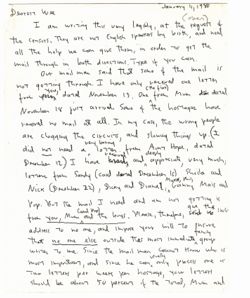 January 11, 1980
Dearest
I am writing this very largely, at the request of
the censors. They are not English speakers by birth, and need
all the help we can give them, in order to get the
mail through in both directions. Type if you can.
Our mail man said that some of the mail is
not getting through. I have only received one letter
from dated November 13. One from Mum dated
November 18 just arrived. Some of the hostages have
received no mail at all. In my case, the wrong people
are clogging the circuits, and slowing things up (I
did not need a letter from Aunt Hope, dated
December 12). I have and appreciate very much,
letters from Sandy (and dated December 16) Sheila and
Nick (December 22), and
Pop. But the mail I need and am not getting is
from you, Mum and the boys. Please, therefore,
address to no one, and impose your will to
that no one else outside this most immediate group
writes to me. Since the mail man cannot know who is
most important and since he can only process one or
two letters per week per hostage, your letters
should be about 50 percent of the total, Mum and